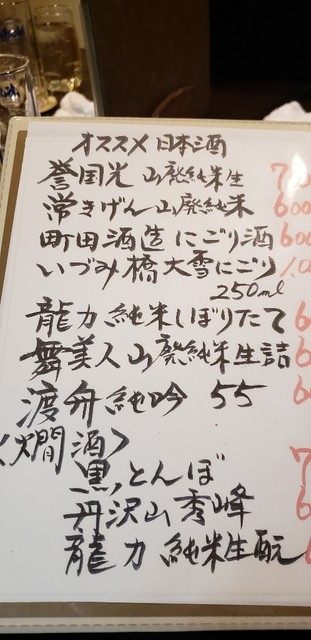 オススメ日本酒
誉国光 山廃純米生 7
常きげん山廃純米 600
町田酒造 にごり酒 600
いづみ橋大雪にごり 1,0
250ml
龍力 純米しぼりたて 6
舞美人山廃純米生詰 6
渡舟純吟 55 6
〈燗酒〉
黒とんぼ 7
丹沢山 秀峰 6
龍力 純米生酛